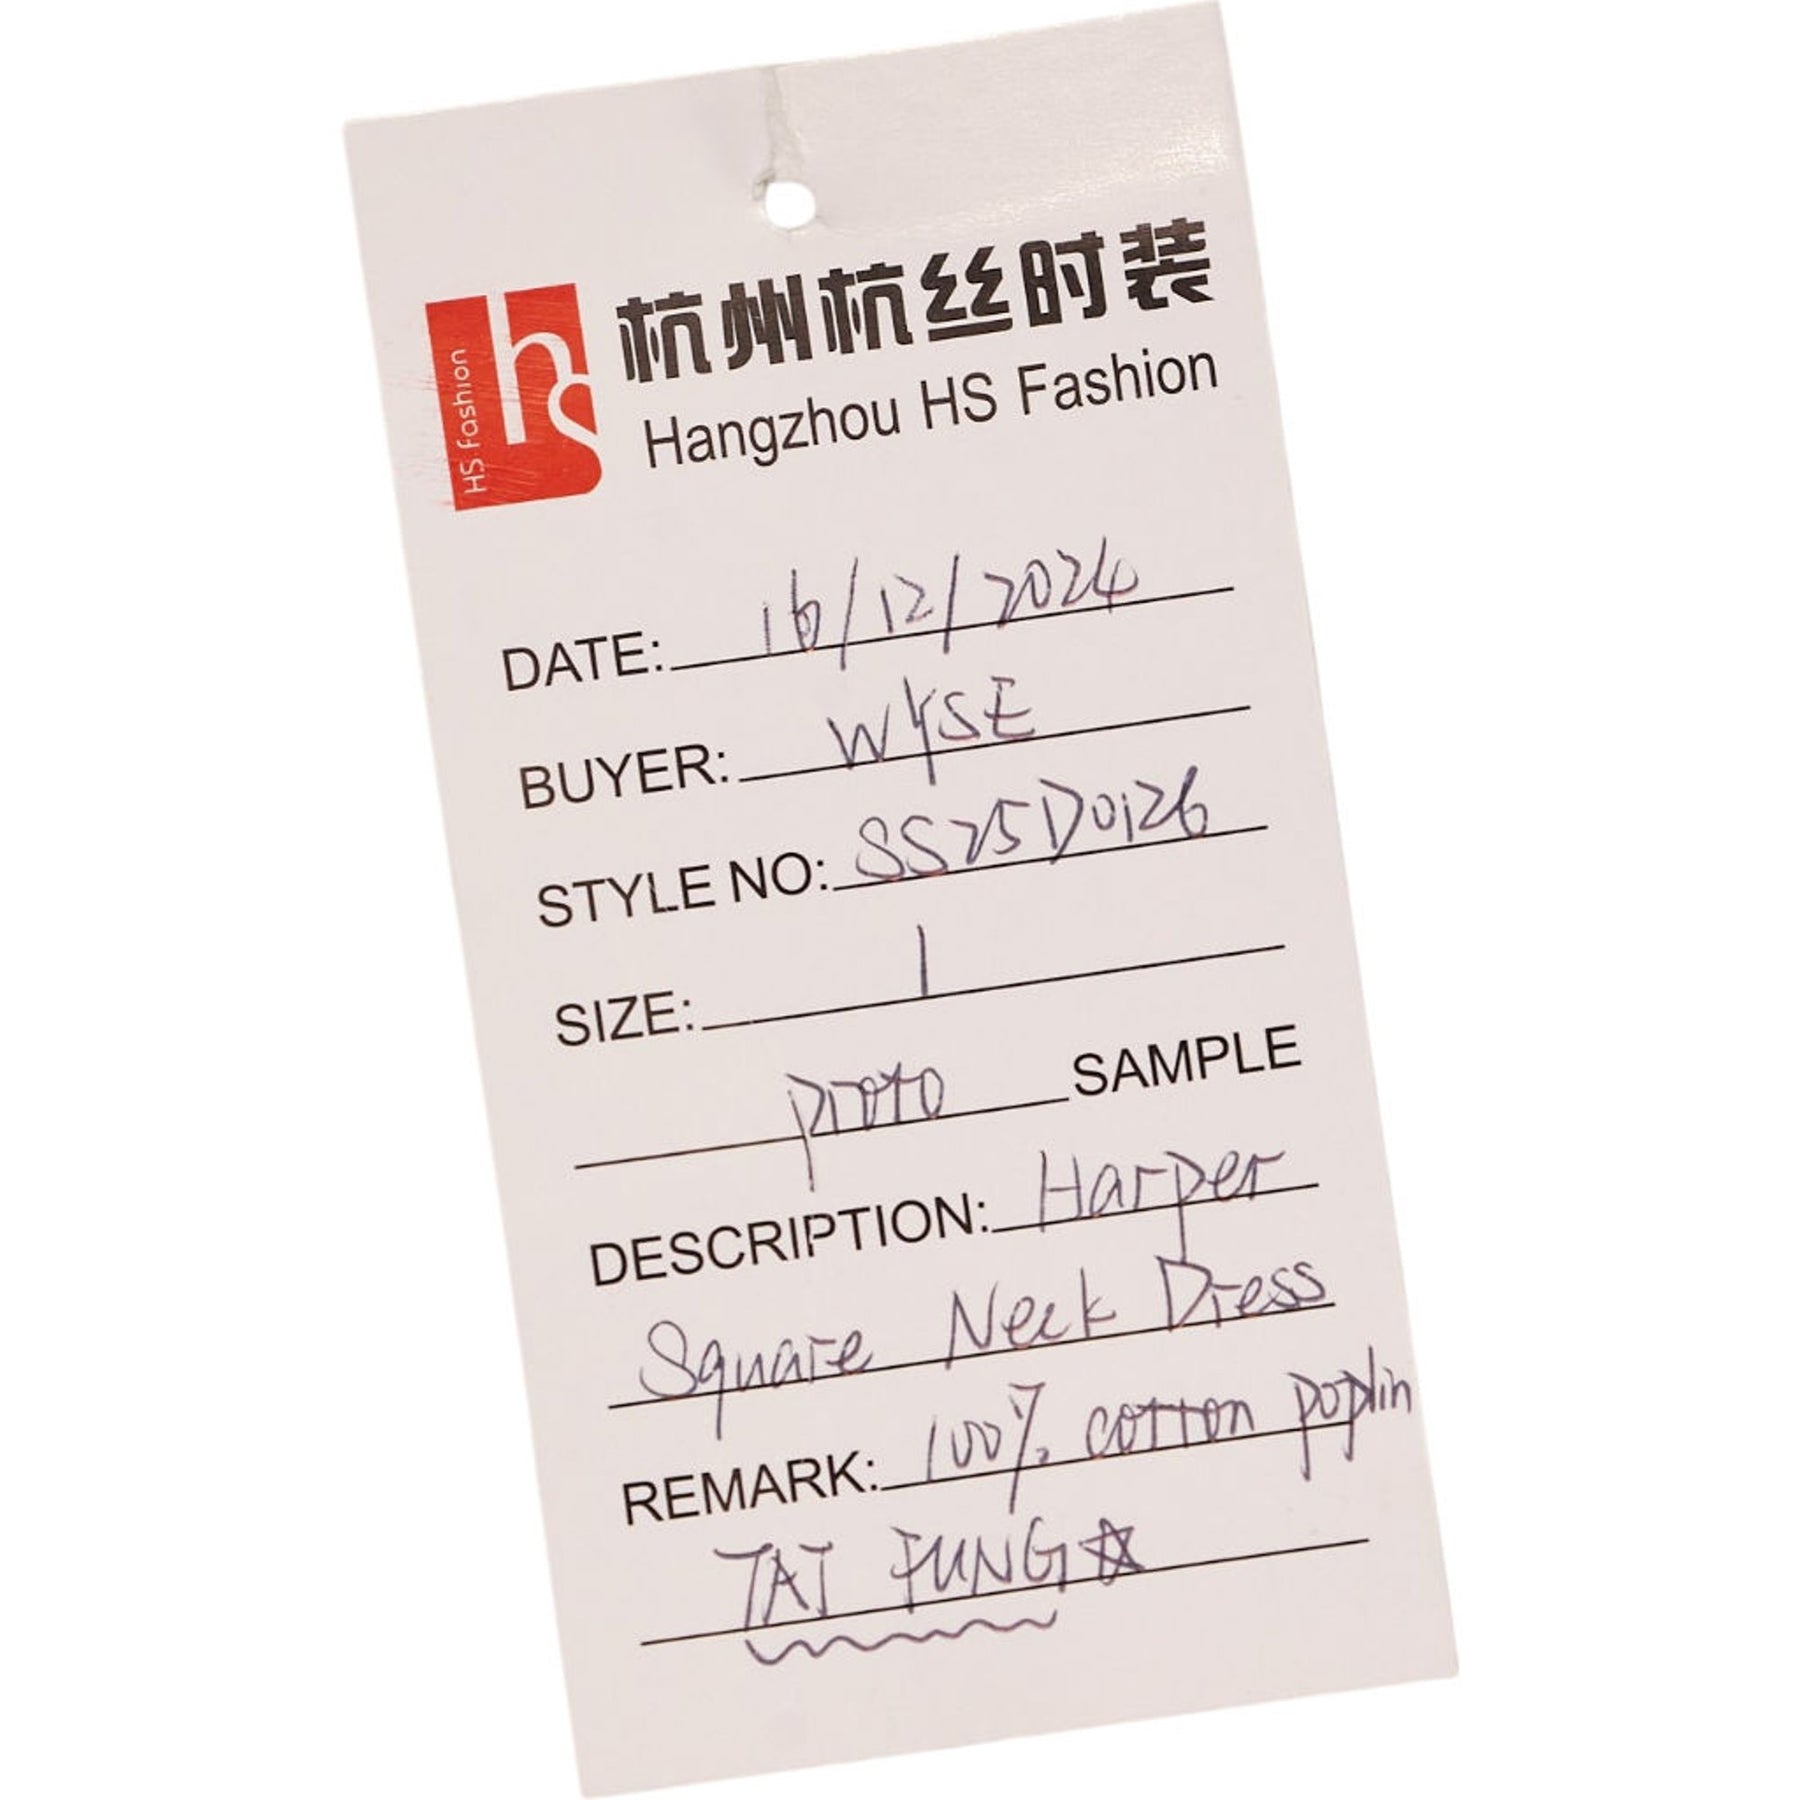 杭州杭丝时装
Hangzhou HS Fashion
hs
HS fashion
DATE: 16/12/2024
BUYER: WYSE
STYLE NO: SS25D0126
SIZE: 1
proto SAMPLE
DESCRIPTION: Harper
Square Neck Dress
REMARK: 100% cotton poplin
TAI FUNG☆